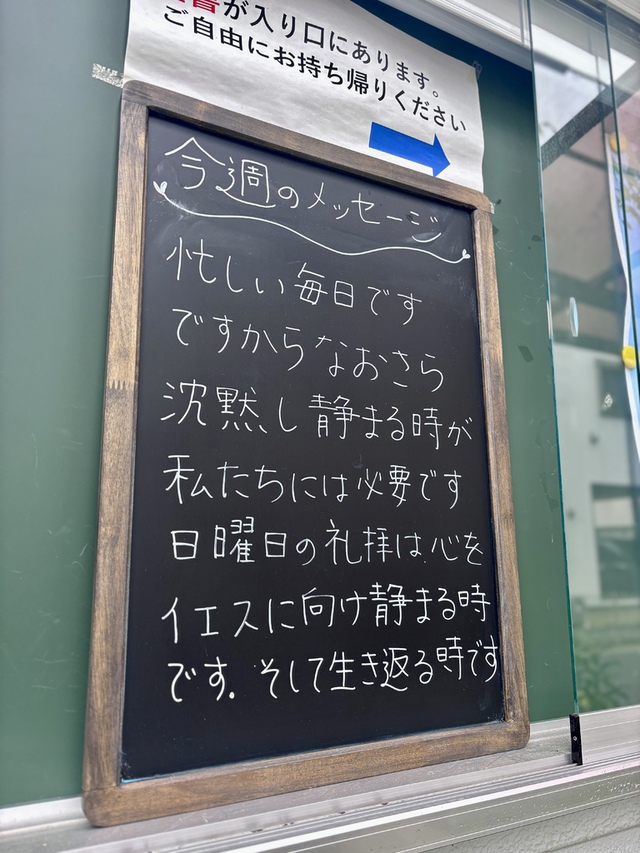 書が入り口にあります。
ご自由にお持ち帰りください
今週のメッセージ
忙しい毎日です
ですからなおさら
沈黙し静まる時が
私たちには必要です
日曜日の礼拝は心を
イエスに向け静まる時
です. そして生き返る時です